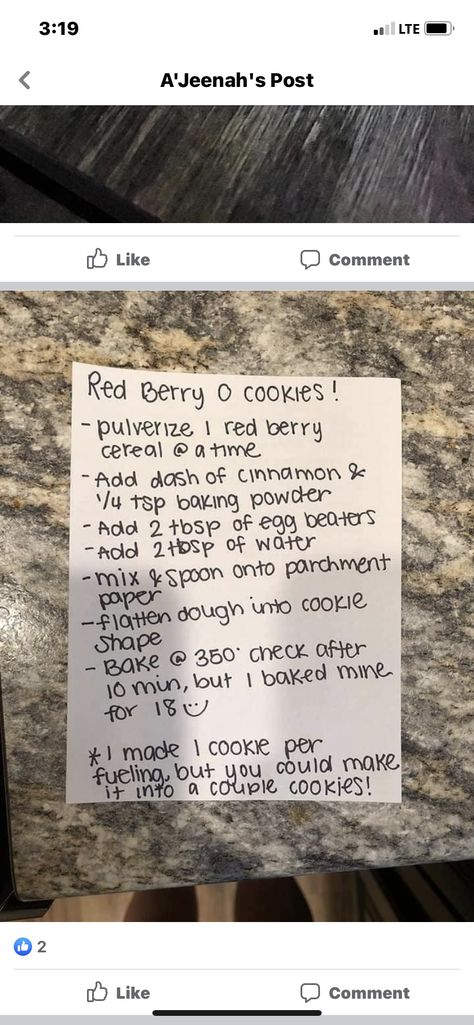 3:19
LTE
A'Jeenah's Post
Like
Comment
Red Berry O cookies!
- pulverize 1 red berry
cereal @ a time
- Add dash of cinnamon &
1/4 tsp baking powder
- Add 2 tbsp of egg beaters
- Add 2 tbsp of water
- mix & spoon onto parchment
paper
- flatten dough into cookie
shape
- Bake @ 350° check after
10 min, but I baked mine
for 18
* I made 1 cookie per
fueling, but you could make
it into a couple cookies!
2
Like
Comment